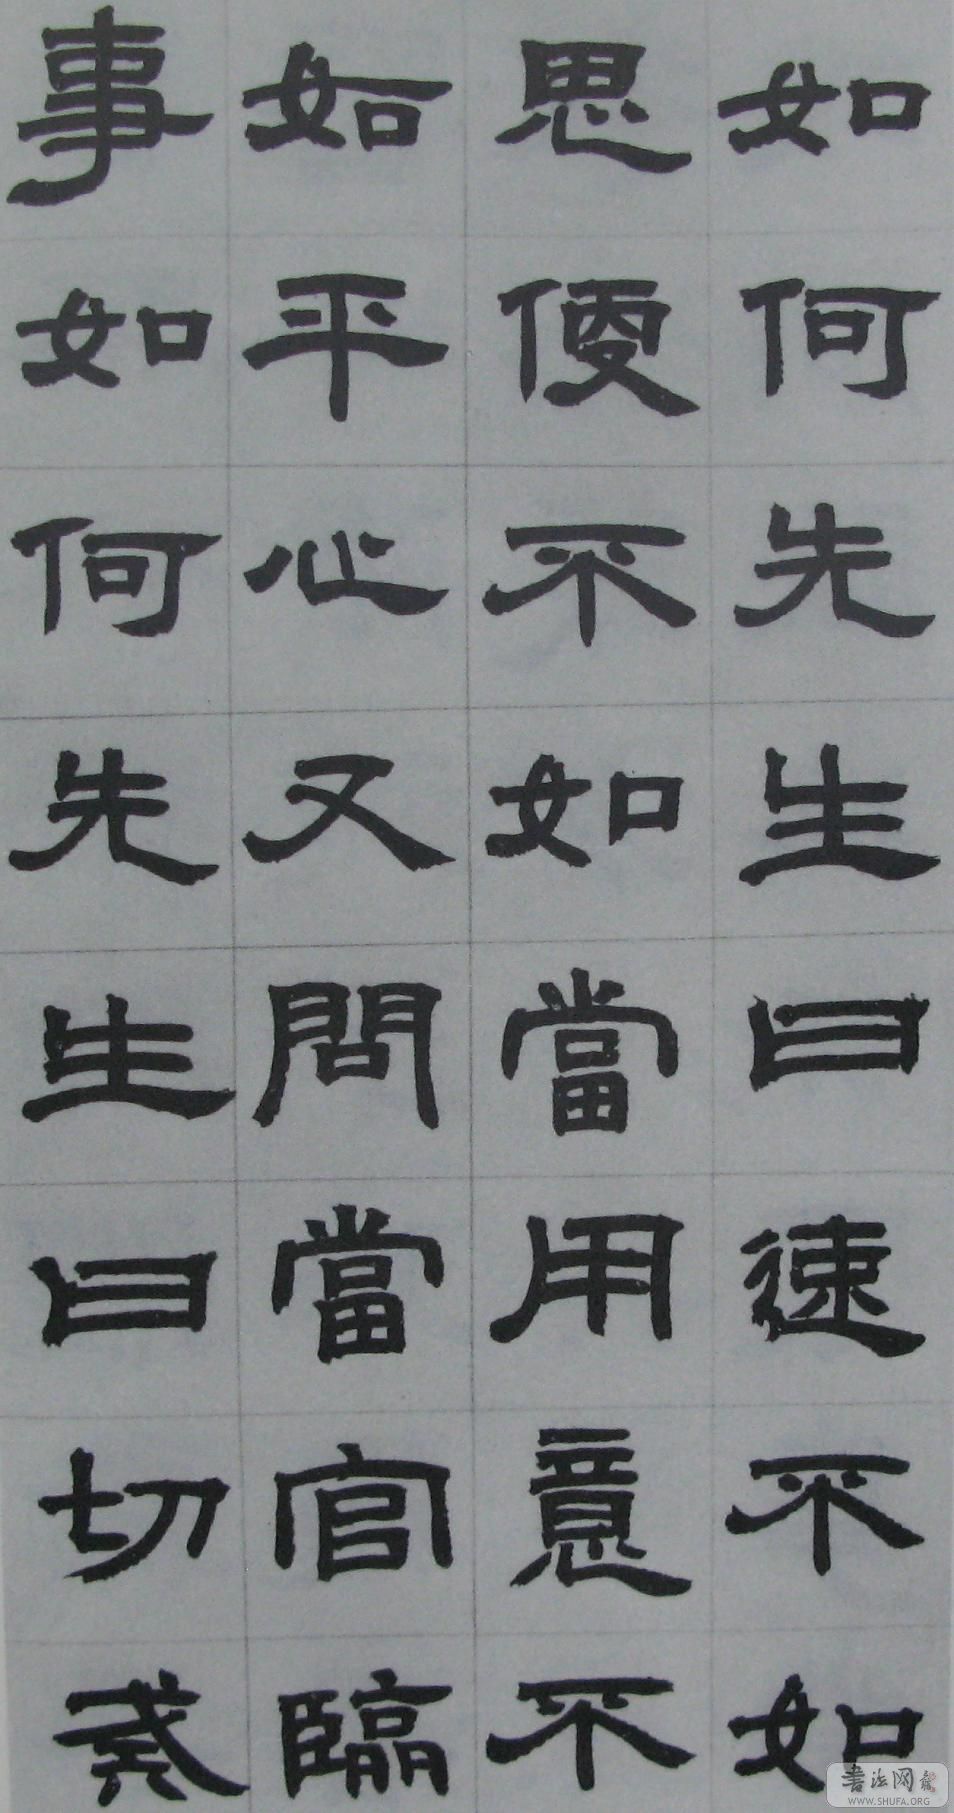 如何先生曰速不如
思便不如當用意不
如平心又問當官臨
事如何先生曰切戒
書法网
WWW.SHUFA.ORG